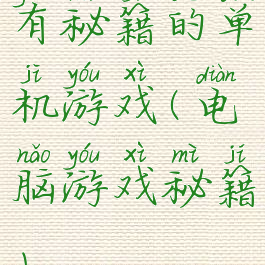 有秘籍的单
jī yóu xì diàn
机游戏(电
nǎo yóu xì mì jí
脑游戏秘籍
)